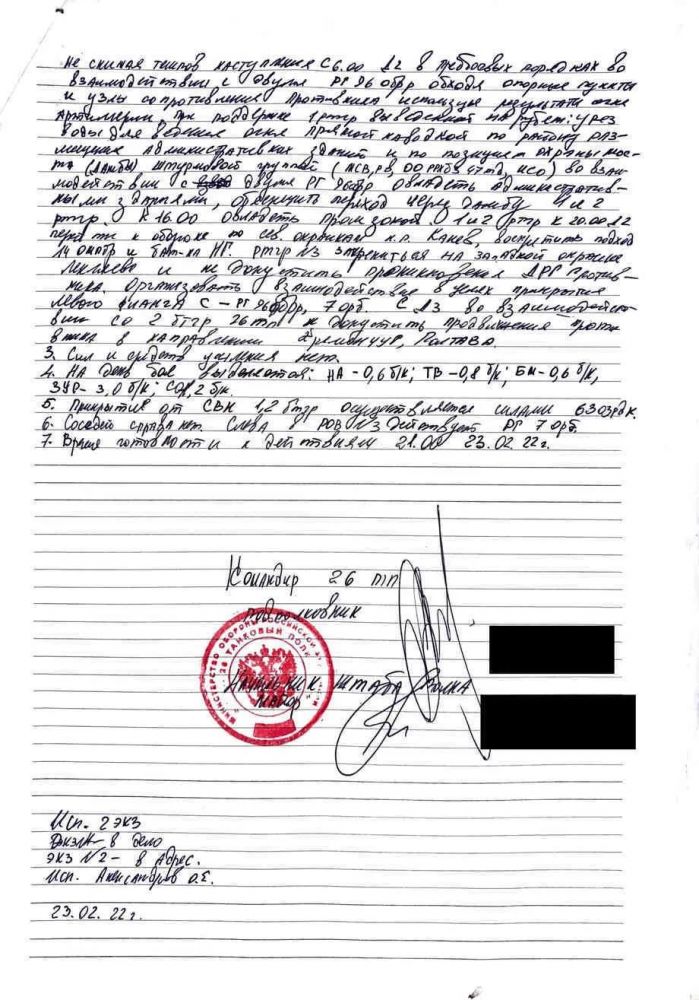 Не снижая темпов наступления с 6.00 Д2 в предбоевых порядках во
взаимодействии с двумя РГ 96 обр обходя опорные пункты
и узлы сопротивления противника используя результаты огня
артиллерии при поддержке 1 ртгр выведенной на рубеж: урез
воды для ведения огня прямой наводкой по району раз-
мещения административных зданий и по позициям охраны мос-
та (дамбы) штурмовой группой
модействии с двумя РГ 96 обр овладеть административ-
ными зданиями, обеспечить переход через дамбу 1 и 2
ртгр. К 16.00 овладеть промзоной. 1 и 2 ртгр к 20.00 Д2
перейти к обороне по сев. окраинам н.п. Канев, воспретить подход
14 омбр и бат-на НГ. ртгр №3 закрепиться на западной окраине
и не допустить проникновения ДРГ против-
ника. Организовать взаимодействие в целях прикрытия
левого фланга с - РГ 96 обр, 7 орб. С Д3 во взаимодейст-
вии со 2 бтгр 26 тп не допустить продвижения проти-
вника в направлении Кременчуг, Полтава.
3. Сил и средств усиления нет.
4. На день боя выделяется: НА - 0,6 б/к; ТВ - 0,8 б/к; БМ - 0,6 б/к;
ЗУР - 3,0 б/к; СО 1,2 б/к.
5. Прикрытие от СВН 1,2 бтгр осуществляется силами 63 озрдн.
6. Соседей справа нет. Слева в РОВ №3 действует РГ 7 орб.
7. Время готовности к действиям 21.00 23.02.22г.
Командир 26 тп
подполковник
МИНИСТЕРСТВО ОБОРОНЫ РОССИЙСКОЙ ФЕДЕРАЦИИ
26 ТАНКОВЫЙ ПОЛК
Начальник штаба полка
майор
Исп. 2 экз
в дело
экз №2 - в адрес.
Исп. Александров О.Е.
23.02.22г.